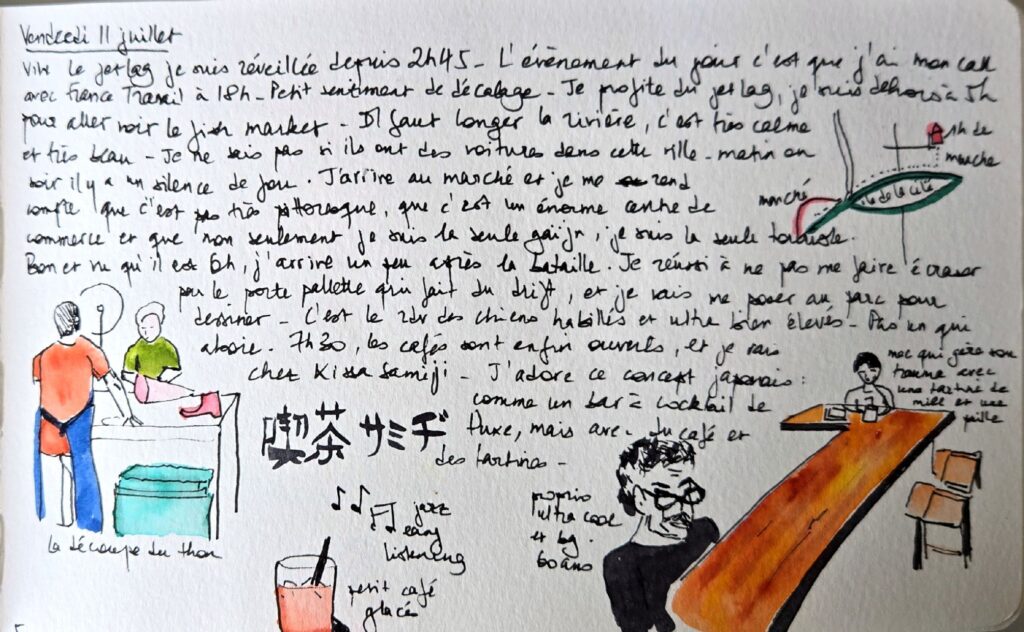 Vendredi 11 juillet
Vive le jetlag je suis réveillée depuis 2h45 - L'évènement du jour c'est que j'ai mon call
avec France Travail à 18h - Petit sentiment de décalage - Je profite du jetlag, je suis dehors à 5h
pour aller voir le fish market - Il faut longer la rivière, c'est très calme
et très beau - Je ne sais pas si ils ont des voitures dans cette ville - matin ou
soir il y a un silence de fou. J'arrive au marché et je me rend
compte que c'est pas très pittoresque, que c'est un énorme centre de
commerce et que non seulement je suis la seule gaijn, je suis la seule touriste.
Bon et vu qu'il est 6h, j'arrive un peu après la bataille. Je réussi à ne pas me faire écraser
par le porte pallette qui fait du drift, et je vais me poser au parc pour
dessiner - C'est le rdv des chiens habillés et ultra bien élevés - Pas un qui
aboie. 7h30, les cafés sont enfin ouverts, et je vais
chez Kissa Samiji - J'adore ce concept japonais :
comme un bar à cocktail de
luxe, mais avec du café et
des tartines -
1h de
marche
marché
île de la cité
la découpe du thon
喫茶 サミヂ
jazz
easy
listening
petit café
glacé
proprio
ultra cool
et bg.
60 ans
mec qui gère son
trauma avec
une tartine de
miel et une